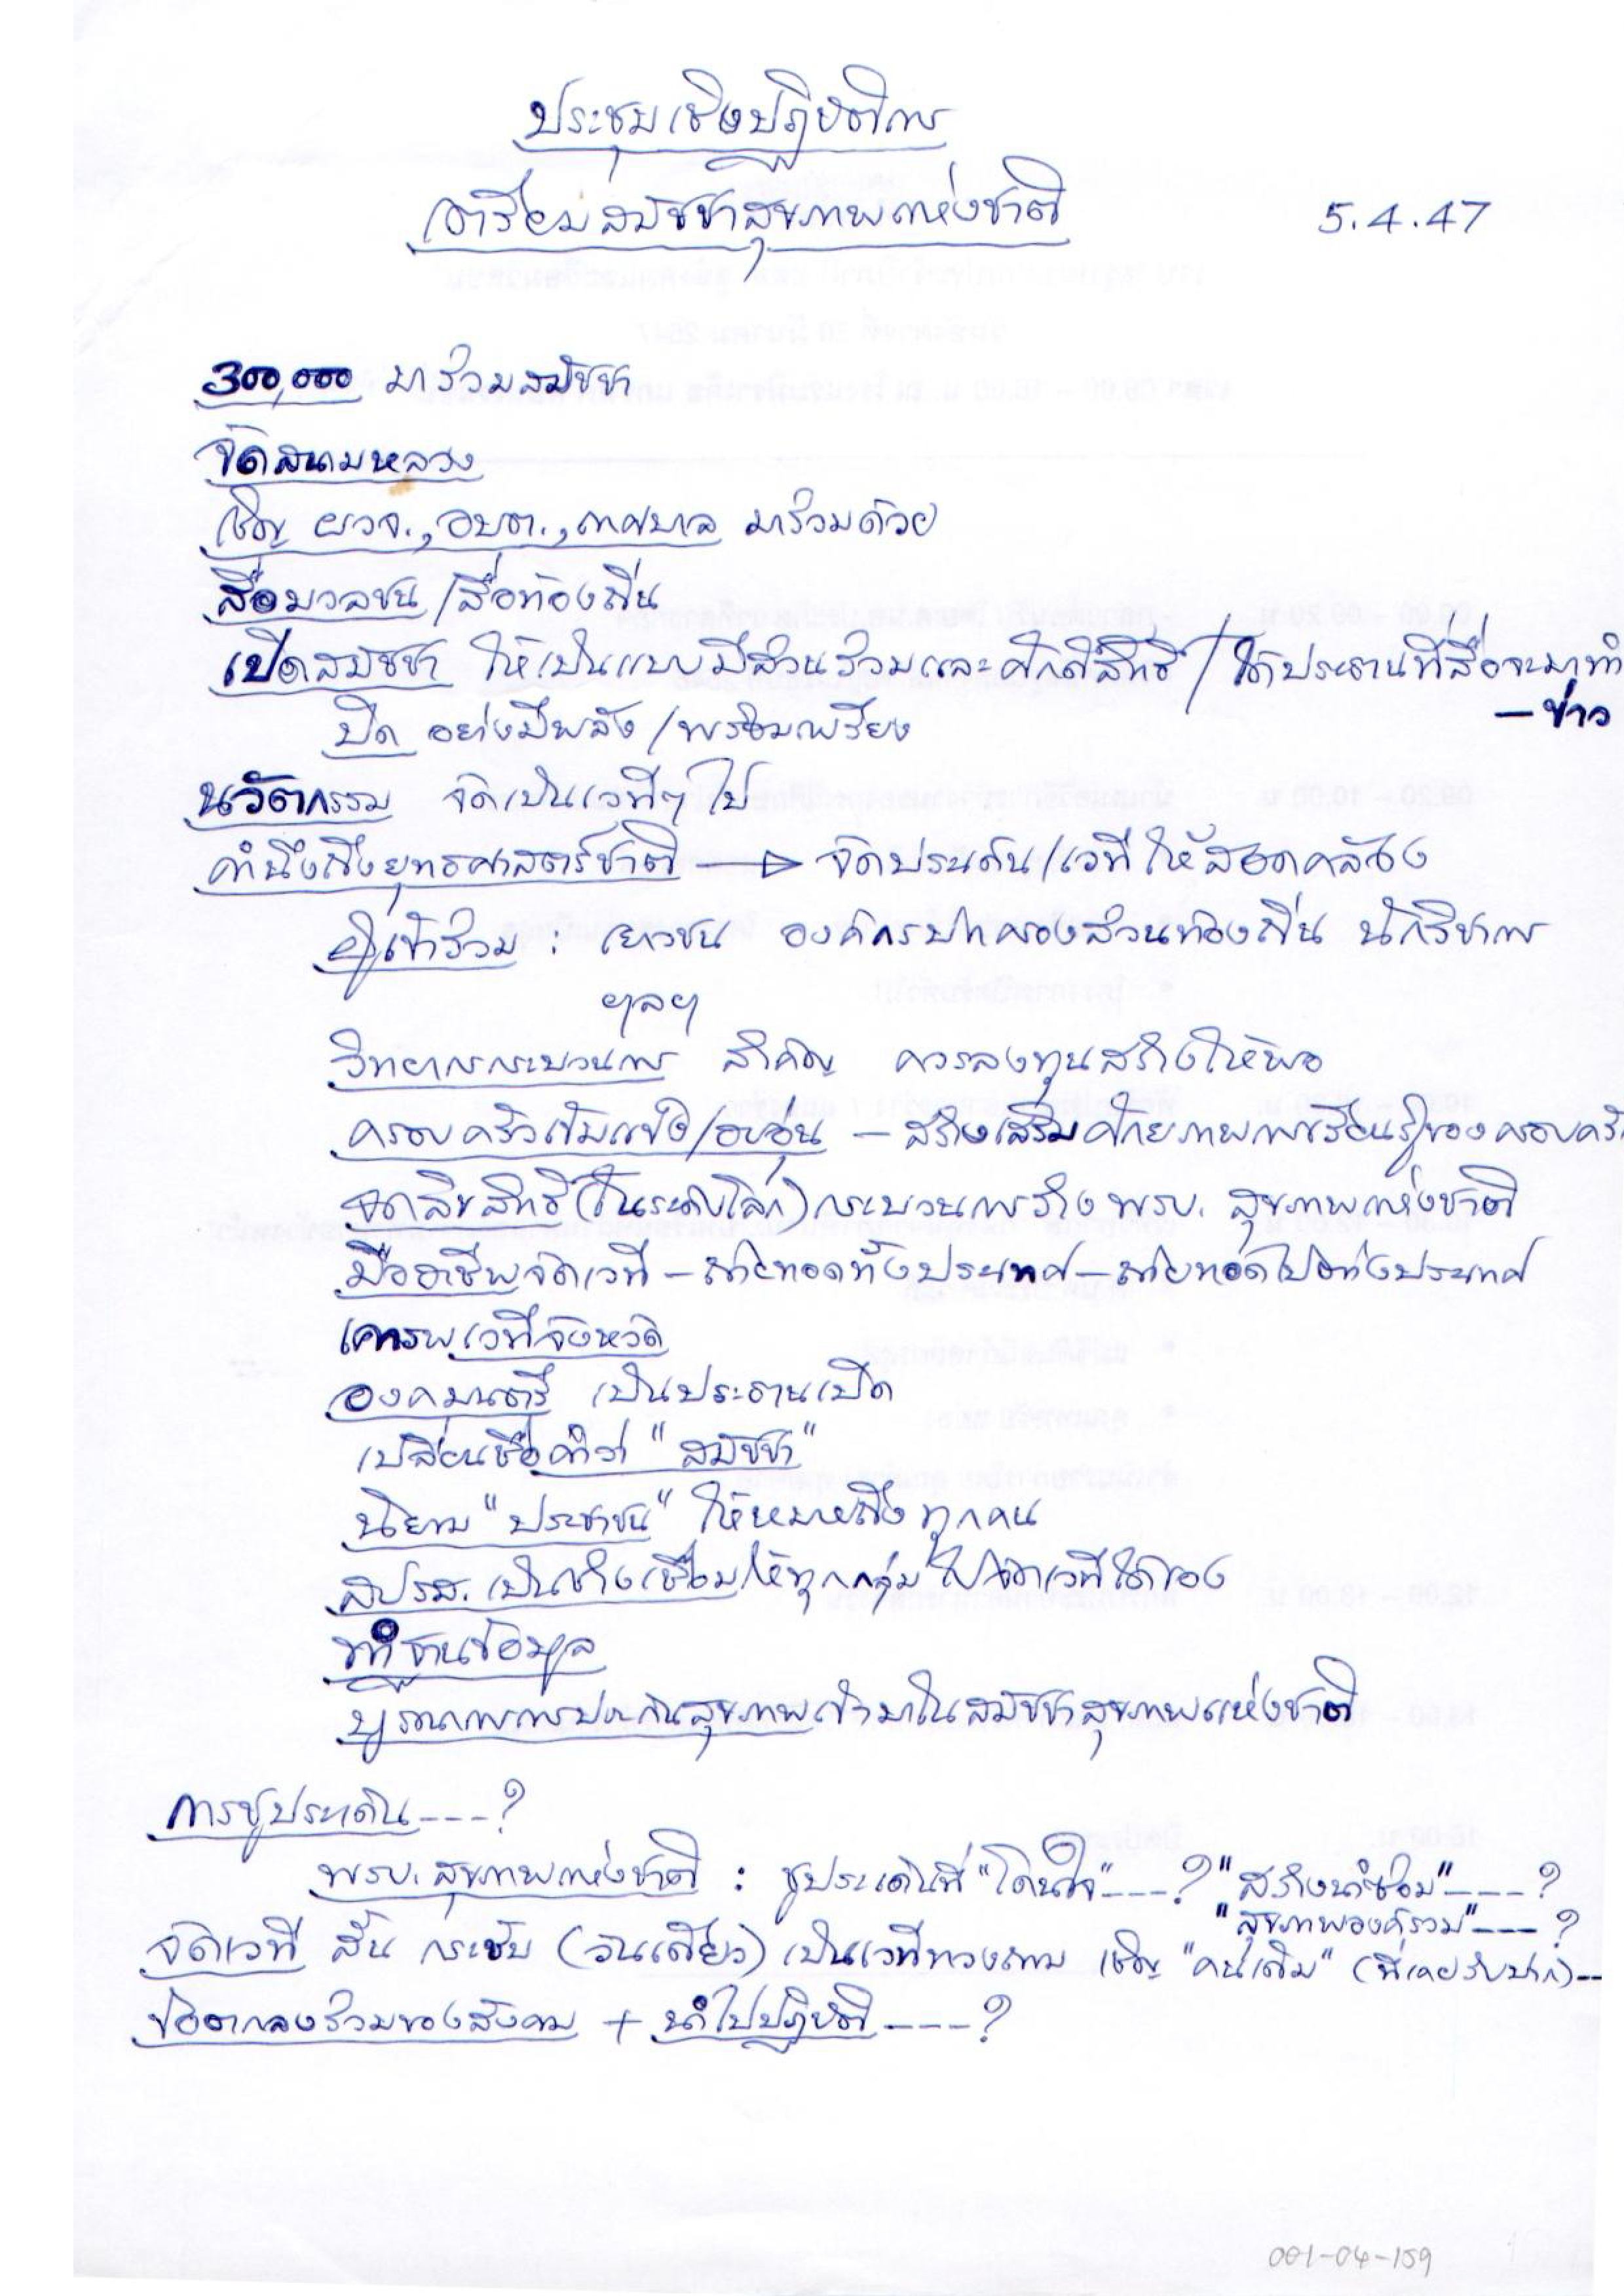 ประชุมเชิงปฏิบัติการ
เตรียมสมัชชาสุขภาพแห่งชาติ
5.4.47
300,000 มาร่วมสมัชชา
จัดสนามหลวง
เชิญ ผวจ., อบต., เทศบาล มาร่วมด้วย
สื่อมวลชน / สื่อท้องถิ่น
เปิดสมัชชา ให้เป็นแบบมีส่วนร่วมและศักดิ์สิทธิ์ / ได้ประธานที่สื่อจะมาทำ
– ข่าว
ปิด อย่างมีพลัง / พร้อมเพรียง
นวัตกรรม จัดเป็นเวทีๆ ไป
คำนึงถึงยุทธศาสตร์ชาติ → จัดประเด็น/เวที ให้สอดคล้อง
ผู้เข้าร่วม : เยาวชน องค์กรปกครองส่วนท้องถิ่น นักวิชาการ
ฯลฯ
วิทยากรกระบวนการ สำคัญ ควรลงทุนสร้างให้พอ
ครอบครัวเข้มแข็ง/อบอุ่น – สร้างเสริมศักยภาพการเรียนรู้ของครอบครัว
จดลิขสิทธิ์ (ในระดับโลก) กระบวนการร่าง พรบ. สุขภาพแห่งชาติ
มืออาชีพจัดเวที – ถ่ายทอดทั้งประเทศ – ถ่ายทอดไปต่างประเทศ
เคารพเวทีจังหวัด
องคมนตรี เป็นประธานเปิด
เปลี่ยนชื่อคำว่า "สมัชชา"
นิยาม "ประชาชน" ให้หมายถึง ทุกคน
สปรส. เป็นช่างเชื่อม ให้ทุกกลุ่ม ไปจัดเวทีได้เอง
ทำฐานข้อมูล
บูรณาการการประกันสุขภาพเข้ามาในสมัชชาสุขภาพแห่งชาติ
การชูประเด็น ----?
พรบ. สุขภาพแห่งชาติ : ชูประเด็นที่ "โดนใจ" ----? "สร้างนำซ่อม" ----?
"สุขภาพองค์รวม" ----?
จัดเวที สั้น กระชับ (วันเดียว) เป็นเวทีทวงถาม เชิญ "คนเดิม" (ที่เคยรับปาก) --
ข้อตกลงร่วมของสังคม + นำไปปฏิบัติ ----?
001-04-159